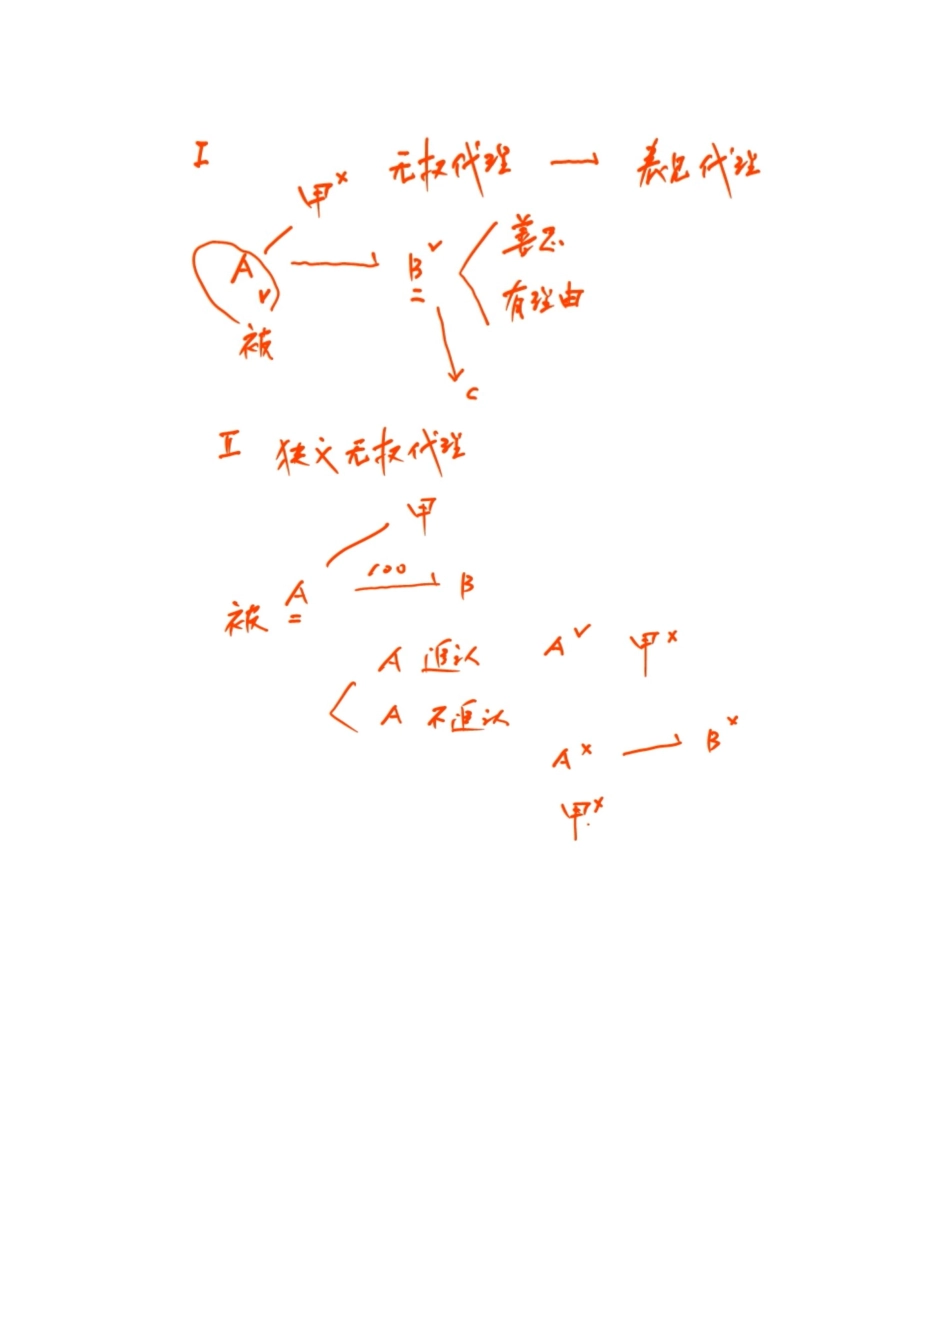 I
无权代理 → 表见代理
甲×
A✓ → B✓
善意
有理由
被
C
II 狭义无权代理
甲
被 A 100 → B
A 追认 A✓ 甲×
A 不追认
A× → B×
甲×